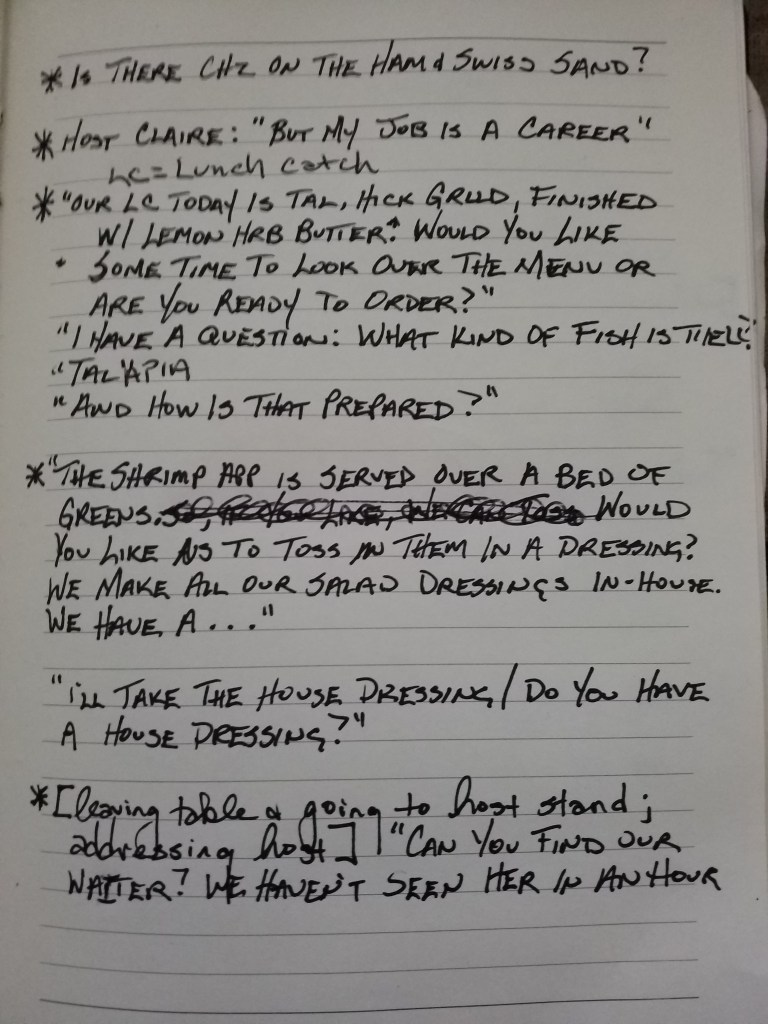 * Is THERE CHZ ON THE HAM & SWISS SAND?
* HOST CLAIRE: "BUT MY JOB IS A CAREER"
LC = Lunch Catch
* "OUR LC TODAY IS TAL, HICK GRLLD, FINISHED
W/ LEMON HRB BUTTER. WOULD YOU LIKE
SOME TIME TO LOOK OVER THE MENU OR
ARE YOU READY TO ORDER?"
"I HAVE A QUESTION: WHAT KIND OF FISH IS
"TALAPIA
"AND HOW IS THAT PREPARED?"
* "THE SHRIMP APP IS SERVED OVER A BED OF
GREENS. WOULD
YOU LIKE US TO TOSS THEM IN A DRESSING?
WE MAKE ALL OUR SALAD DRESSINGS IN-HOUSE.
WE HAVE A..."
"I'LL TAKE THE HOUSE DRESSING / DO YOU HAVE
A HOUSE DRESSING?"
* [leaving table & going to host stand;
addressing host] "CAN YOU FIND OUR
WAITER? WE HAVEN'T SEEN HER IN AN HOUR